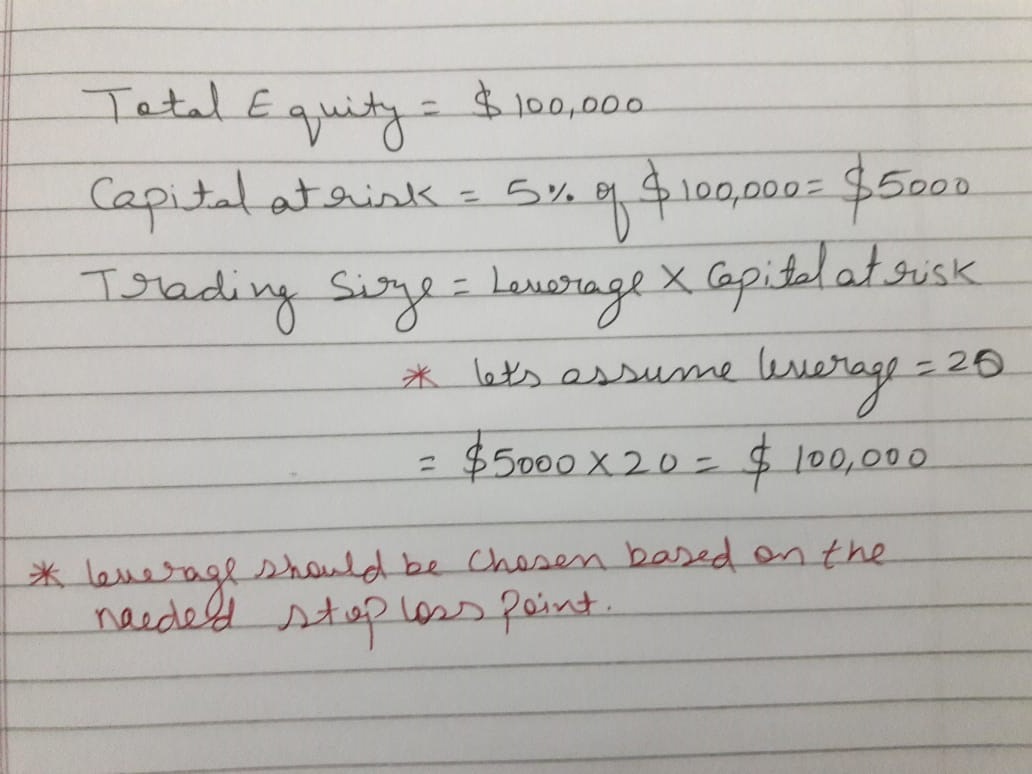 Total Equity = $100,000
Capital at risk = 5% of $100,000 = $5000
Trading Size = Leverage X Capital at risk
* lets assume leverage = 20
= $5000 X 20 = $ 100,000
* leverage should be chosen based on the
needed stop loss point.